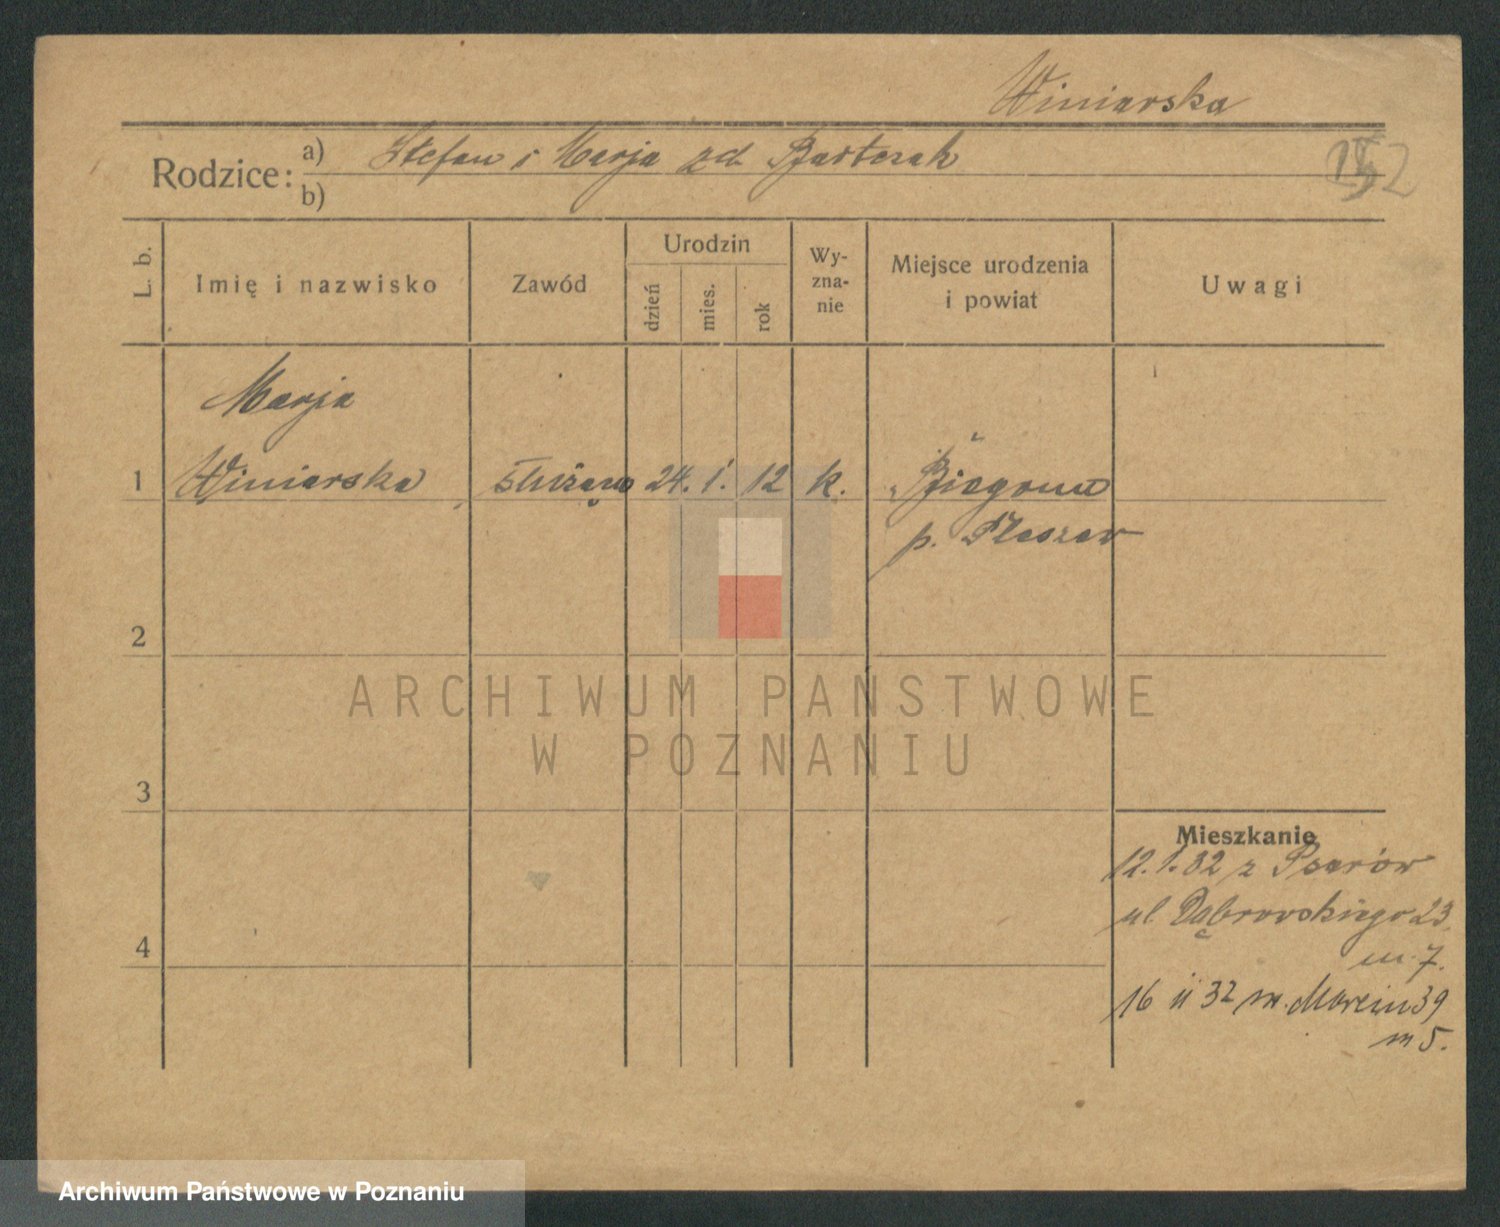 Winiarska
Rodzice: a) Stefan i Marja zd Bartczak
b)
L. b.
Imię i nazwisko
Zawód
Urodzin
dzień
mies.
rok
Wy-
zna-
nie
Miejsce urodzenia
i powiat
Uwagi
Marja
1 Winiarska służąca 24. 1. 12 k.
p. Pleszew
2
3
4
Mieszkanie
12.1.32 z Psarów
ul Dąbrowskiego 23
m. 7.
16 II 32 m. Marcin 39
m 5.
ARCHIWUM PAŃSTWOWE
W POZNANIU
Archiwum Państwowe w Poznaniu